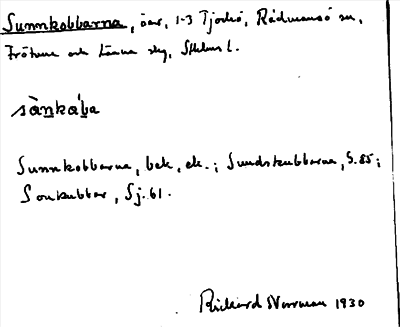 Sunnkobbarna, öar, 1-3 Tjockö, Rådmansö sn,
Frötuna och Länna skg, Sthlms l.
sànkába
Sunnkobbarna, bek, ek.; Sundskubbarna, S.85;
Sonkubbar, Sj.61.
Rickard 1930